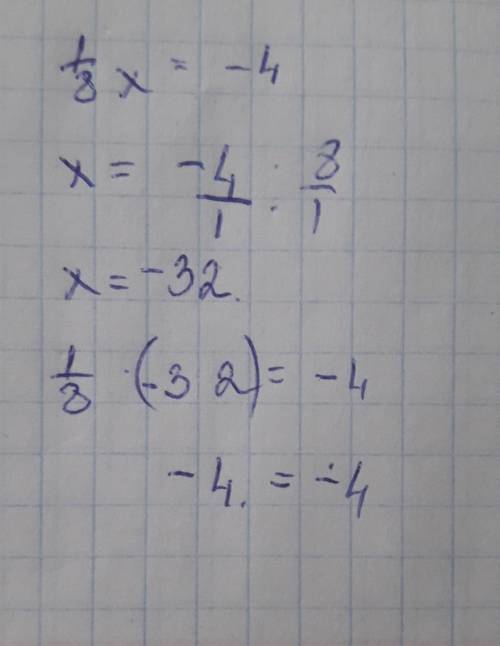 1/8 x = -4
x = -4/1 : 8/1
x = -32.
1/8 · (-32) = -4
-4. = -4